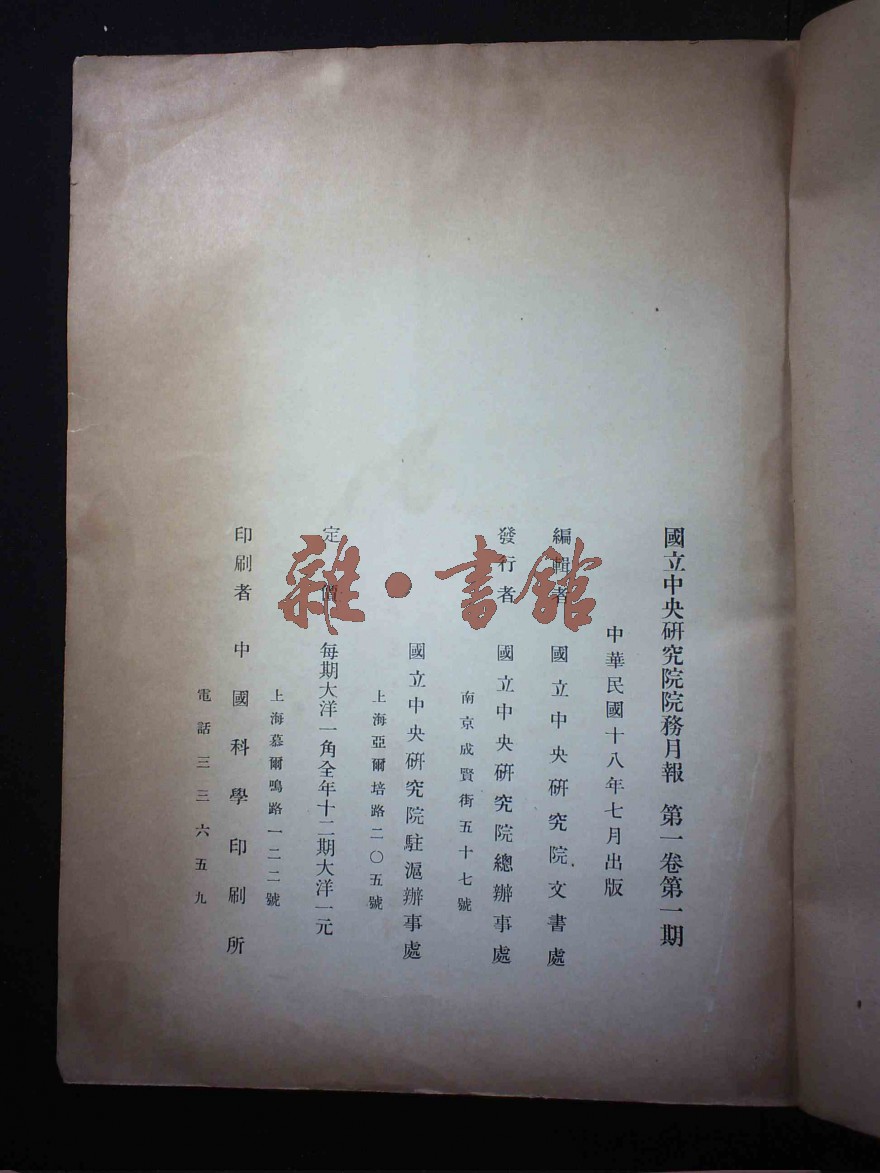 國立中央研究院院務月報　第一卷第一期
中華民國十八年七月出版
編輯者　國立中央研究院文書處
發行者　國立中央研究院總辦事處
南京成賢街五十七號
國立中央研究院駐滬辦事處
上海亞爾培路二〇五號
定價　每期大洋一角全年十二期大洋一元
上海慕爾鳴路一二二號
印刷者　中國科學印刷所
電話三三六五九
雜·書館